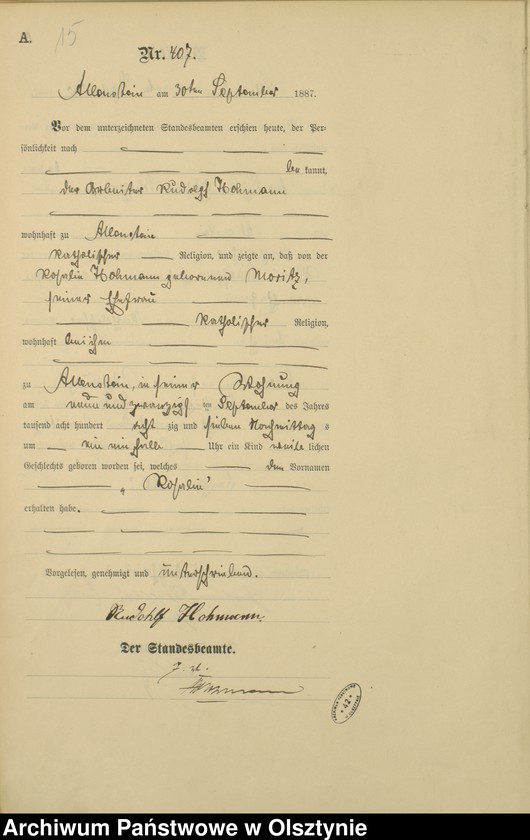 A.
15
Nr. 407.
Allenstein am 30ten September 1887.
Vor dem unterzeichneten Standesbeamten erschien heute, der Per-
sönlichkeit nach
be kannt,
der Arbeiter Rudolph Hohmann
wohnhaft zu Allenstein
katholischer Religion, und zeigte an, daß von der
Rosalie Hohmann geborenen Moritz,
seiner Ehefrau
katholischer Religion,
wohnhaft bei ihm
zu Allenstein, in seiner Wohnung
am neun und zwanzigs ten September des Jahres
tausend acht hundert acht zig und sieben Nachmittag s
um ein ein halb Uhr ein Kind weib lichen
Geschlechts geboren worden sei, welches den Vornamen
„Rosalie"
erhalten habe.
Vorgelesen, genehmigt und unterschrieben.
Rudohlf Hohmann.
Der Standesbeamte.
42
Archiwum Państwowe w Olsztynie